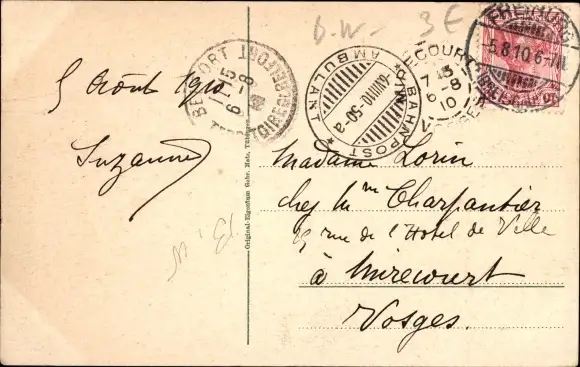 D.W.
3 E
FREIBURG
5.8.10.6-7N.
(BREISGAU)
BELFORT
11-15
6-8
AMBULANT
BAHNPOST
50-a
MIRECOURT
7
6-8
10
VOSGES
5 Août 1910
Suzanne
Madame Lorin
chez Mme Charpentier
15 rue de l'Hotel de Ville
à Mirecourt
Vosges.
Original-Eigentum Gebr. Metz, Tübingen